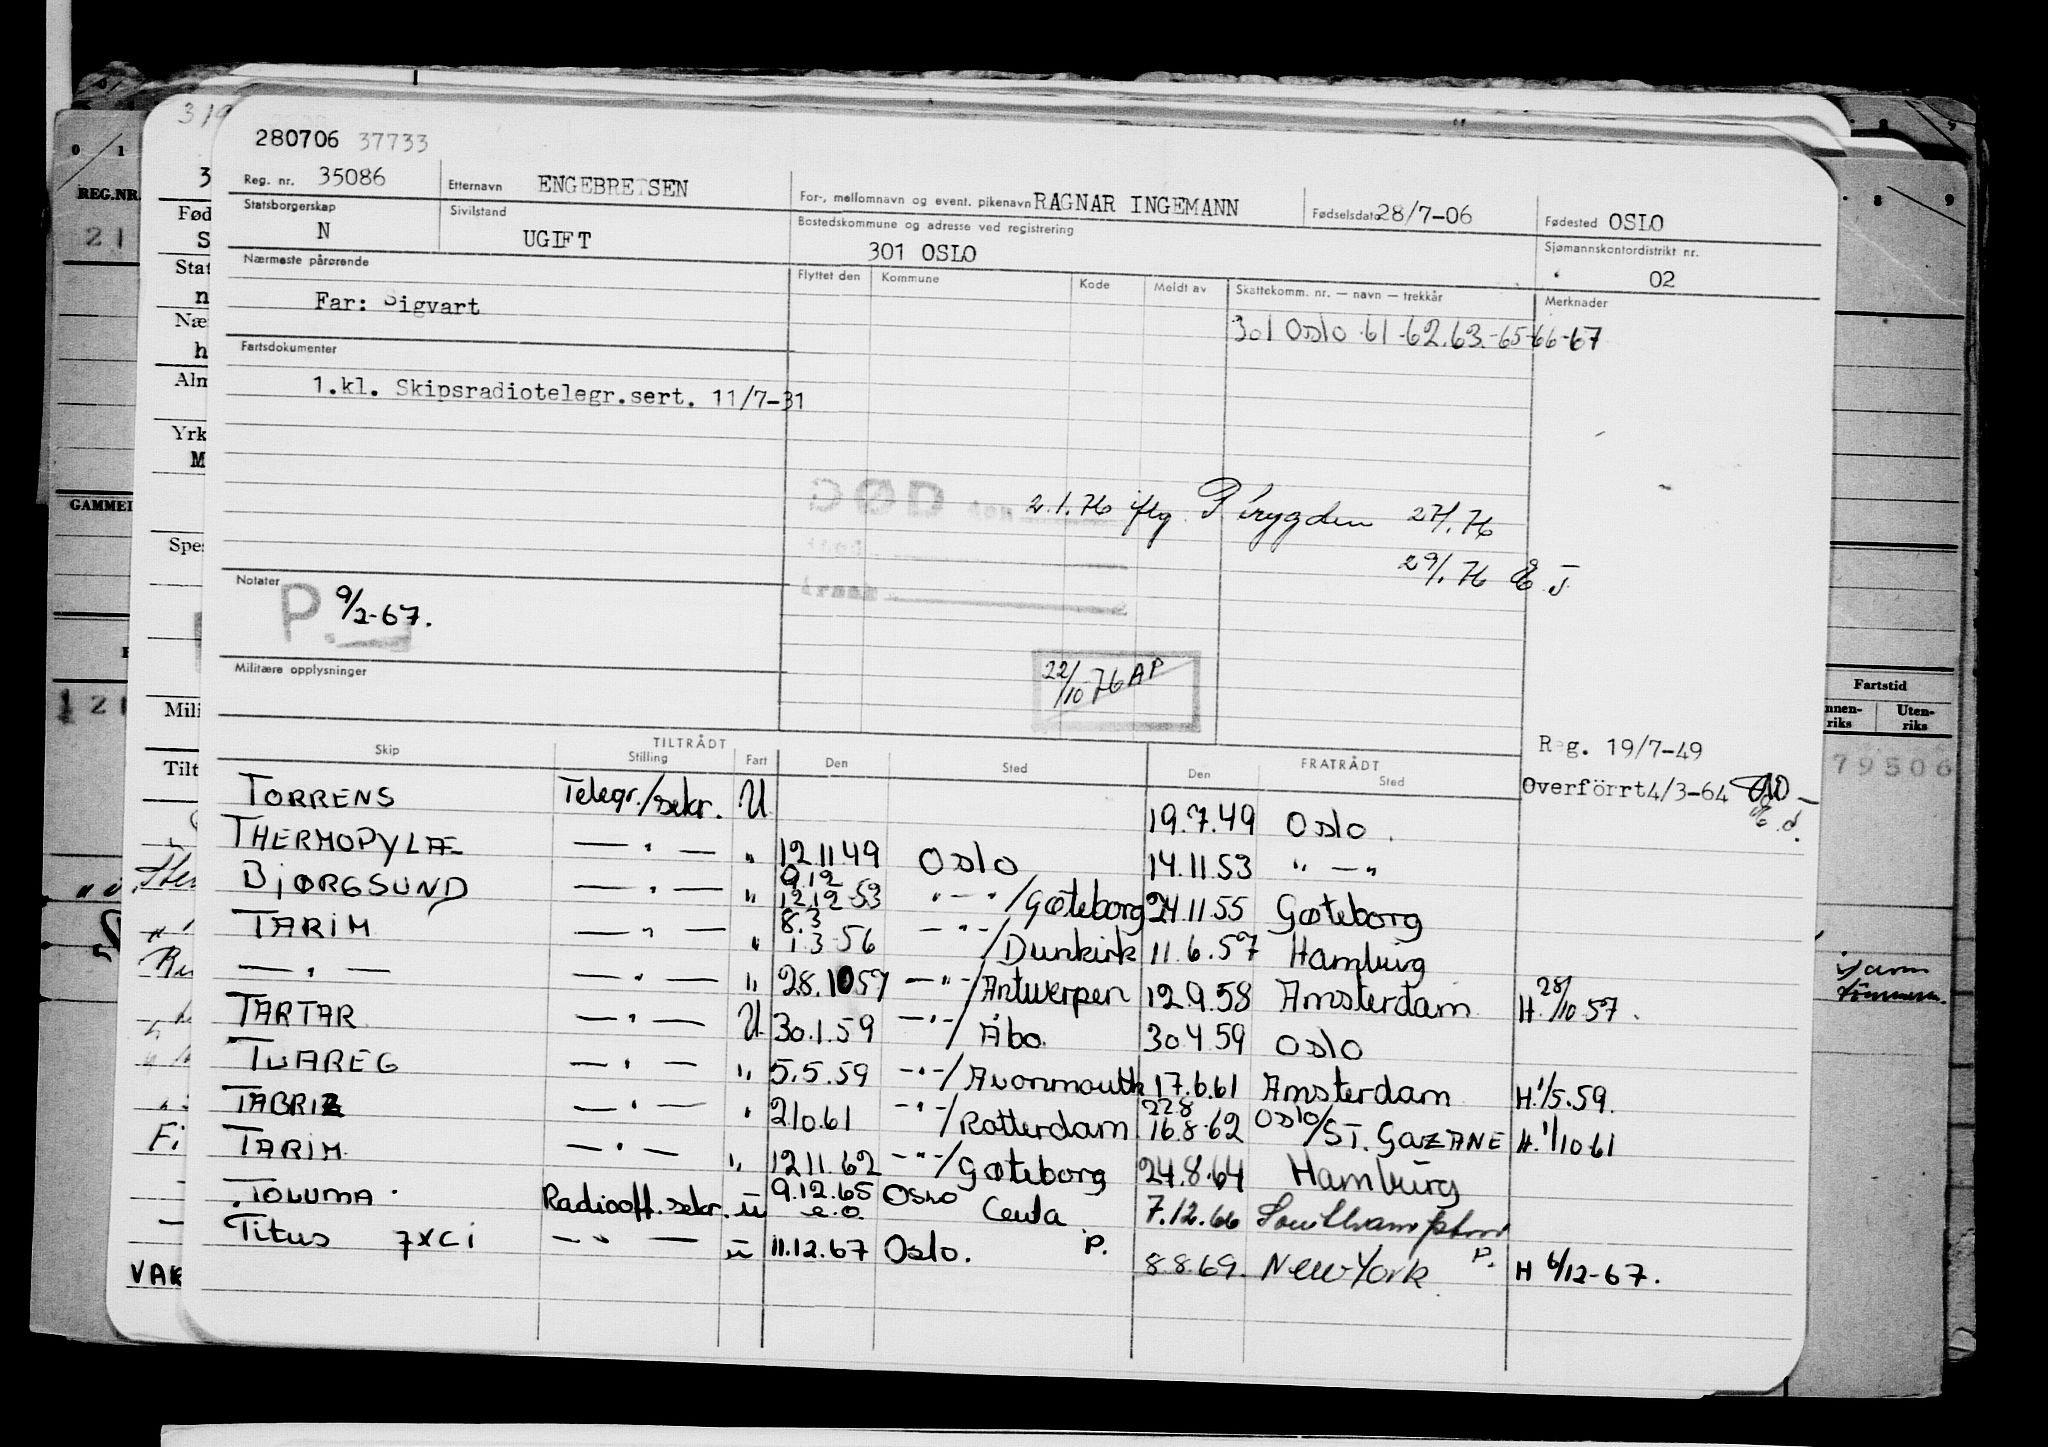 280706 37733
Reg. nr. 35086 Etternavn ENGEBRETSEN For-, mellomnavn og event. pikenavn RAGNAR INGEMANN Fødselsdato 28/7-06 Fødested OSLO
Statsborgerskap N Sivilstand UGIFT Bostedskommune og adresse ved registrering 301 OSLO Sjømannskontordistrikt nr. 02
Nærmeste pårørende Flyttet den Kommune Kode Meldt av Skattekomm. nr. — navn — trekkår Merknader
Far: Sigvart 301 Oslo 61-62.63.-65-66-67
Fartsdokumenter
1.kl. Skipsradiotelegr.sert. 11/7-31
DØD den 2.1.76 iflg. P.trygden 27/1.76
29/1.76 E J.
Notater
P. 9/2-67.
Militære opplysninger
22/10-76 AP
Reg. 19/7-49
Overförrt 4/3-64
Skip TILTRÅDT Stilling Fart Den Sted FRATRÅDT Den Sted
TORRENS Telegr./sekr. U 19.7.49 Oslo.
THERMOPYLÆ — " — " 12.11.49 Oslo 14.11.53 " — "
BJØRGSUND — " — " 9.12 12.12.53 " — " /Gøteborg 24.11.55 Gøteborg
TARIM — " — " 8.3 1.3.56 — " — /Dunkirk 11.6.57 Hamburg
— " — — " — " 28.10.57 — " — /Antwerpen 12.9.58 Amsterdam H. 28/10.57.
TARTAR — " — U 30.1.59 — " — /Åbo. 30.4.59 Oslo
TUAREG — " — " 5.5.59 — " — /Avonmouth 17.6.61 Amsterdam H. 1/5.59.
TABRIZ — " — " 2.10.61 — " — /Rotterdam 22.8 16.8.62 Oslo/ST. GAZANE H. 1/10 61
TARIM — " — " 12.11.62 — " — /Gøteborg 24.8.64 Hamburg
TOLUMA Radiooff. sekr. U 9.12.65 e.o. Oslo Ceuta 7.12.66 Southampton
Titus 7XCI — " — U 11.12.67 Oslo. P. 8.8.69. New York P. H 6/12-67.
REG.NR.
21
GAMMEL
Fød
Stat
Næ
Alm
Yrk
Spes
Mili
Tilt
VAK
Fartstid
Uten-
riks
79506